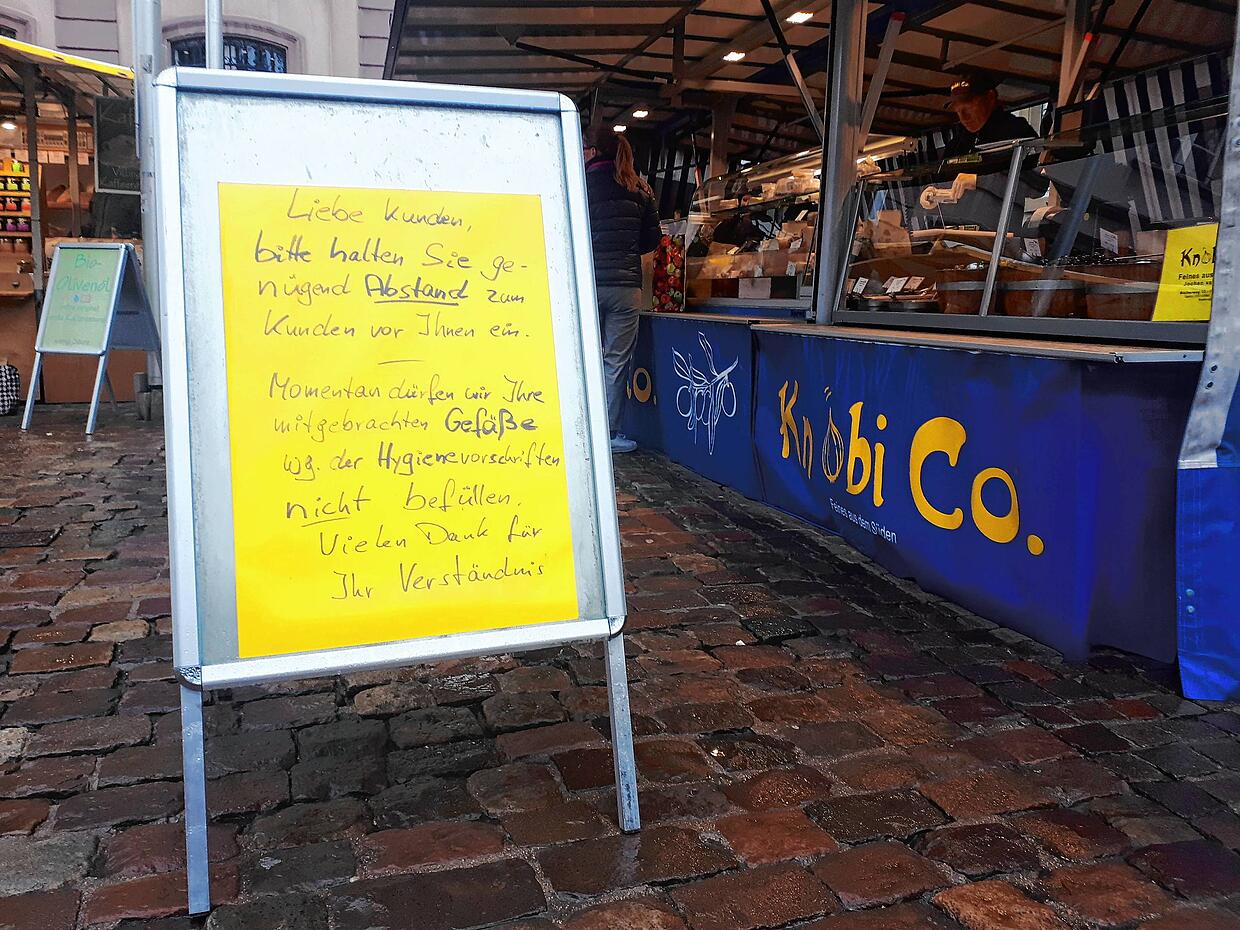 Liebe Kunden,
bitte halten Sie ge-
nügend Abstand zum
Kunden vor Ihnen ein.
Momentan dürfen wir Ihre
mitgebrachten Gefäße
wg. der Hygienevorschriften
nicht befüllen.
Vielen Dank für
Ihr Verständnis
Bio-
Olivenöl
Knobi Co.
Feines aus dem Süden
Co.
Kno
Feines aus